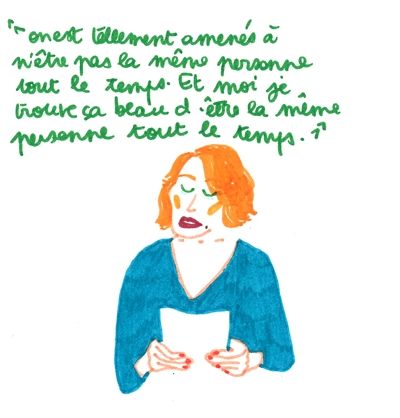 "on est tellement amenés à
n'être pas la même personne
tout le temps. Et moi je
trouve ça beau d'être la même
personne tout le temps."